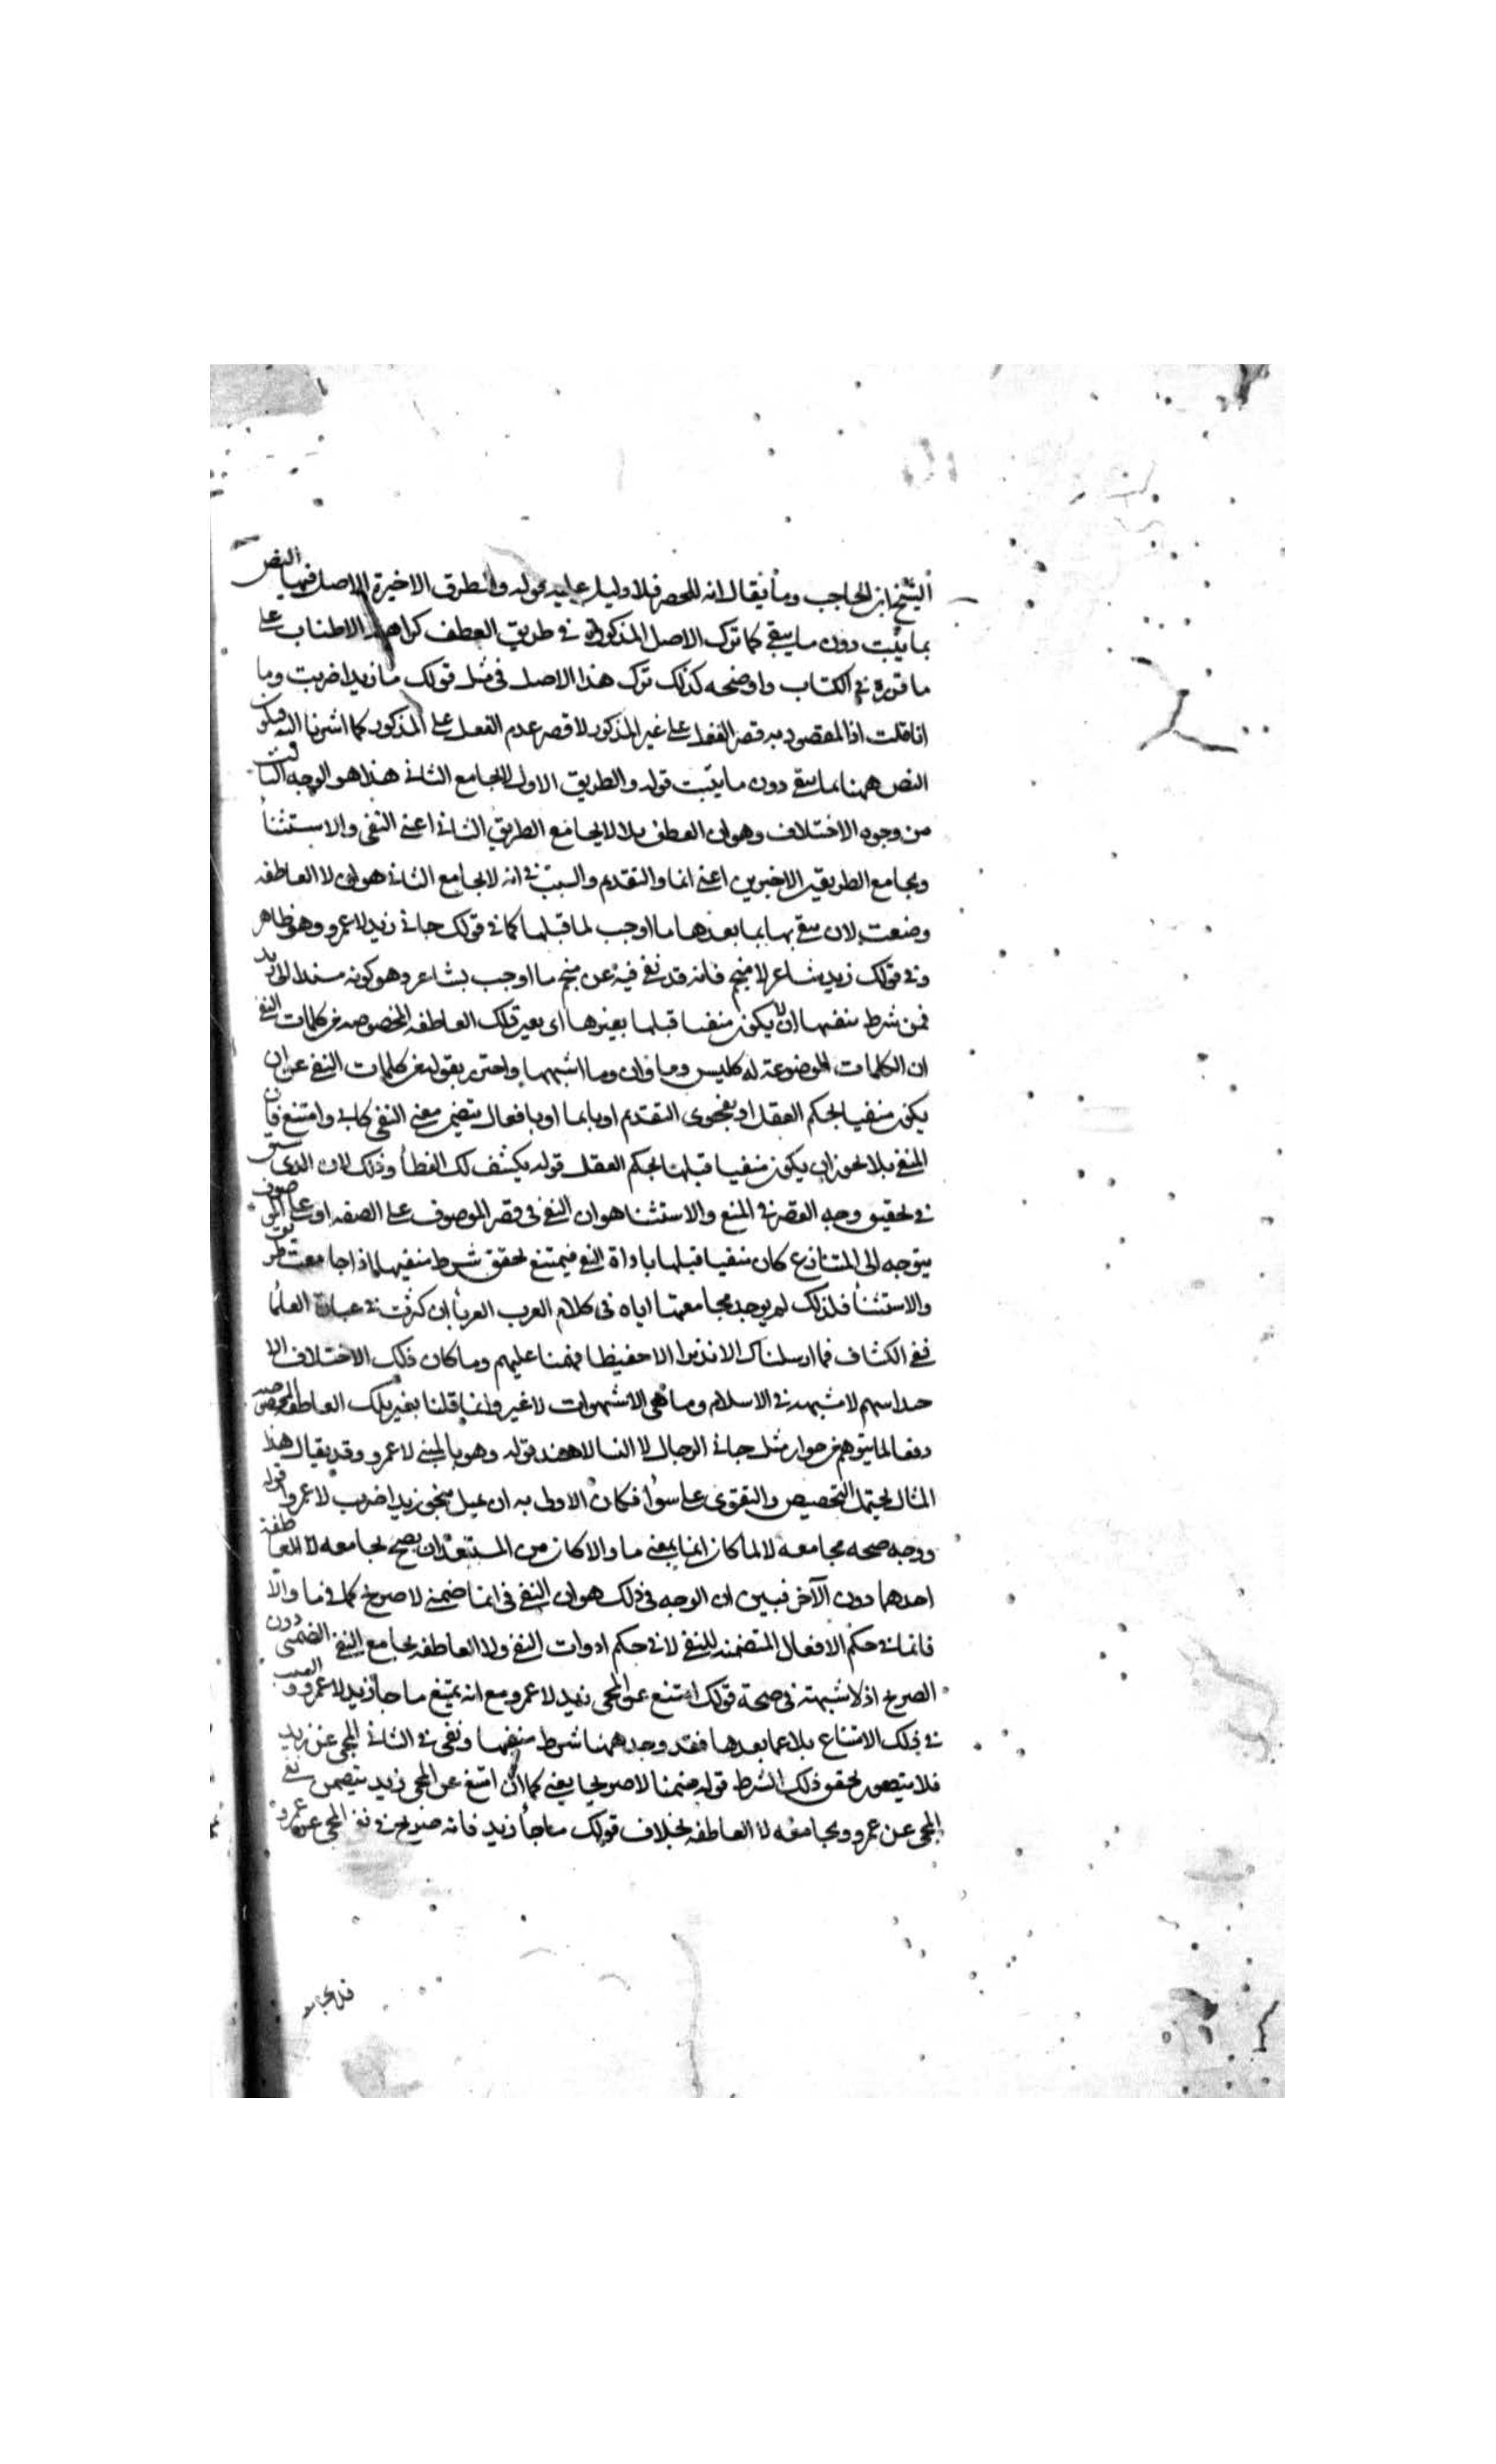 الشيخ ابن الحاجب وما يقال انه للحصر فلا دليل عليه قوله والطرق الاخيرة الاصل فيها النص
بما يثبت دون ما ينفي كما ترك الاصل المذكور في طريق العطف كراهة الاطناب على
ما قرره في الكتاب واوضحه كذلك ترك هذا الاصل في مثل قولك ما زيدا ضربت وما
انا قلت اذ المقصود به قصر الفعل على غير المذكور لا قصر عدم الفعل على المذكور كما اشرنا اليه فيكون
النص ههنا بما ينفي دون ما يثبت قوله والطريق الاول لا يجامع الثاني هذا هو الوجه الثالث
من وجوه الاختلاف وهو ان العطف بلا لا يجامع الطريق الثاني اعني النفي والاستثنأ
ويجامع الطريقين الاخيرين اعني انما والتقديم والسبب في انه لا يجامع الثاني هو ان لا العاطفه
وضعت لان ينفي بها بما بعدها ما اوجب لما قبلها كما في قولك جاني زيد لا عمرو وهو ظاهر
وفي قولك زيد شاعر لا منجم فانه قد نفي فيه عن منجم ما اوجب بشاعر وهو كونه مسندا الى زيد
فمن شرط منفيها ان لا يكون منفيا قبلها بغيرها اى بغير تلك العاطفه المخصوصه من كلمات النفي
ان الكلمات الموضوعة له كليس وما وان وما اشبهها واحترز بقوله من كلمات النفي عن ان
يكون منفيا بحكم العقل او بفحوى التقديم او بانما او بافعال يتضمن معنى النفي كابي وامتنع فان
المنفي بلا يجوز ان يكون منفيا قبلها بحكم العقل قوله يكشف لك الغطأ وذلك لان الذى سبق
في تحقيق وجه القصر في المنع والاستثنا هو ان النفي في قصر الموصوف على الصفه او على الموصوف
يتوجه الى المتنازع كان منفيا قبلها باداة النفي فيمتنع تحقق شرط منفيها اذا جامعت طريق
والاستثنأ فلذلك لم يوجد مجامعتها اياه في كلام العرب العربأ ان كثرت في عبارة العلمأ
ففي الكشاف فما ارسلناك الا نذيرا لا حفيظا مهيمنا عليهم وما كان ذلك الاختلاف الا
حدا سهم لا شبهه في الاسلام وما هي الا شهوات لا غير وانما قلنا بغير تلك العاطفه المخصوصه
دفعا لما يتوهم من جواز مثل جاني الرجال لا النسا لا هند قوله وهو يا لمبنى لا عمرو وقد يقال هذا
المثال يحتمل التخصيص والتقوى على سوأ فكان الاولى به ان يمثل بنحو زيدا ضرب لا عمرو قوله
ووجه صحه مجامعه لا لما كان انما بمعنى ما والا كان من المستبعد ان يصح مجامعه لا العاطفة
احدهما دون الآخر فبين ان الوجه في ذلك هو ان النفي في انما ضمني لا صريح كما في ما والا
فانما في حكم الافعال المتضمنه للنفي لا في حكم ادوات النفي ولا العاطفه يجامع النفي الضمنى دون
الصريح اذ لا شبهة في صحة قولك امتنع عن المجى زيد لا عمرو مع انه يمتنع ما جأ زيد لا عمرو والسبب
في ذلك الامتناع بلا عما بعدها فقد وجد ههنا شرط منفيها ونفى في الثاني المجى عن زيد
فلا يتصور تحقق ذلك الشرط قوله ضمنا لا صريحا يعني كما ان امتنع عن المجى زيد يتضمن نفي
المجى عن عمرو ويجامعه لا العاطفه بخلاف قولك ما جأ زيد فانه صريح في نفي المجى عن عمرو